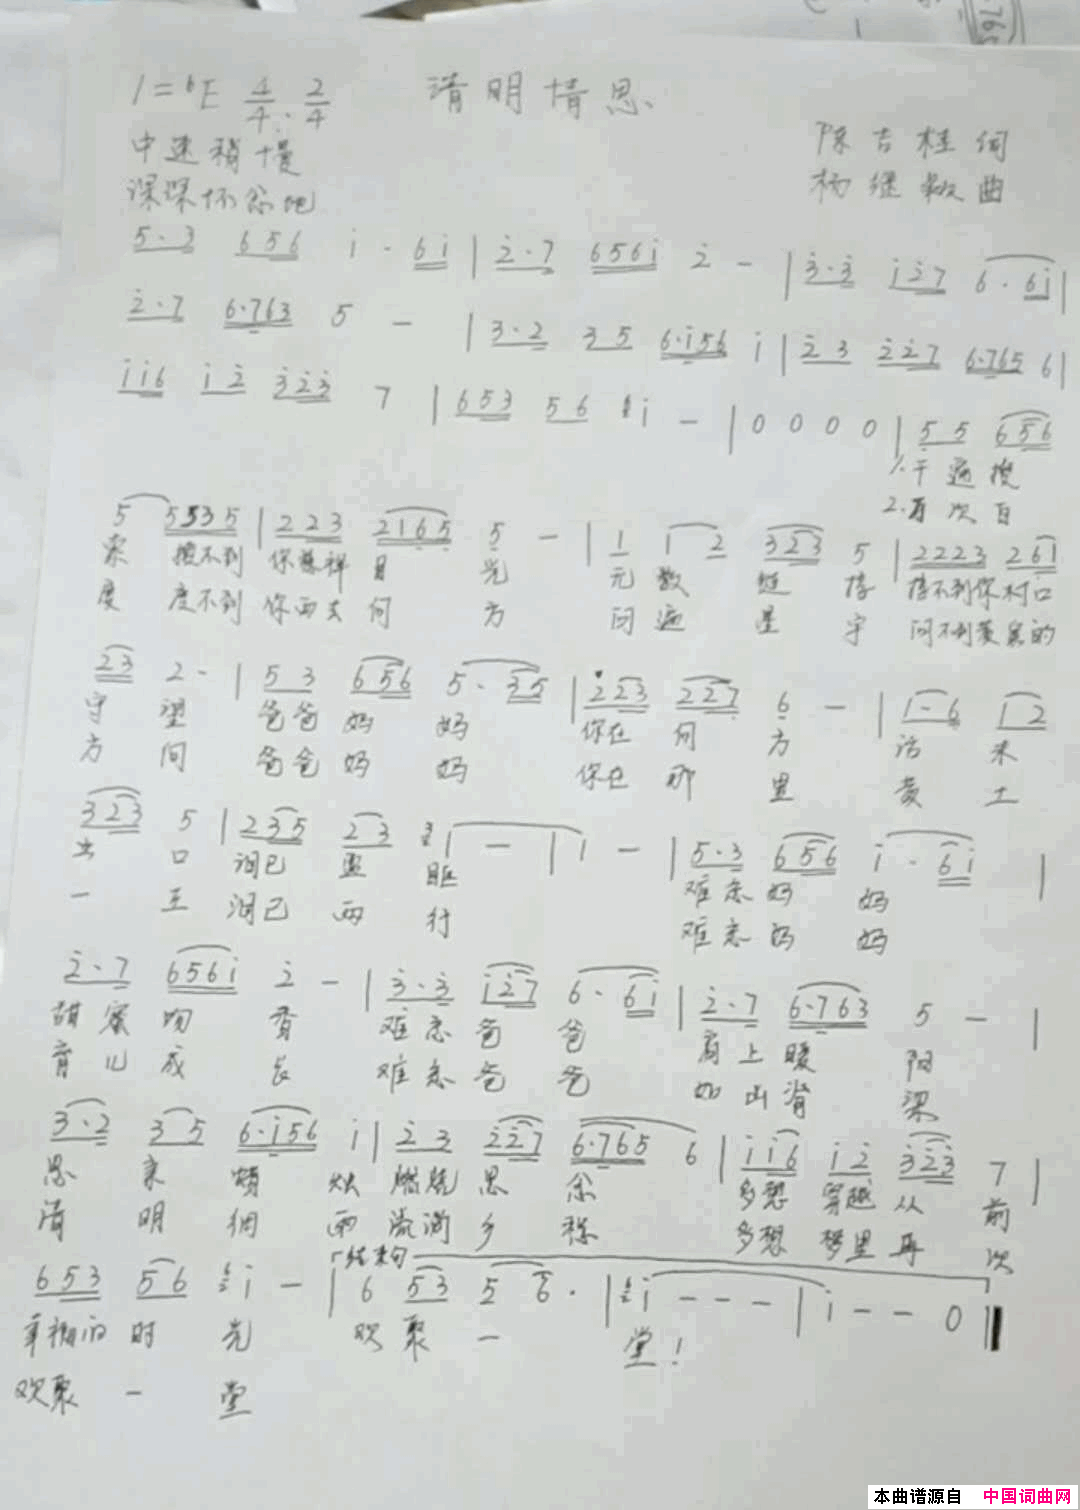 1=ᵇE 4/4 2/4 清明情思
中速稍慢
深深怀念地
陈吉桂词
杨继 曲
5·3 656 i·6i | 2·7 656i 2 - | 3·3 i27 6·6i |
2·7 6·763 5 - | 3·2 35 6·i56 i | 23 227 6·765 6 |
ii6 i2 323 7 | 653 56 i - | 0 0 0 0 | 55 656
1.千遍搜
2.百次自
5 5535 | 223 2165 5 - | 1 12 323 5 | 2223 261
索 搜不到 你慈祥 目 光 数 不到你村口
度 度不到 你西去 何 方 问 遍 星 宇 问不到 的
23 2· | 53 656 5·35 | 223 227 6 - | 1·6 12
守 望 爸爸 妈 妈 你在 何 方 话 未
方 间 爸爸 妈 妈 你在 那 里 黄 土
323 5 | 235 23 1 - | 1 - | 5·3 656 i·6i |
出 口 泪已 盈 眶 难忘 妈 妈
一 泪已 两 行 难忘 妈 妈
2·7 656i 2 - | 3·3 i27 6·6i | 2·7 6·763 5 - |
甜蜜 吻 香 难忘 爸 爸 肩上 暖 阳
育儿 成 长 难忘 爸 爸 如山 脊 梁
3·2 35 6·i56 i | 23 227 6·765 6 | ii6 i2 323 7 |
思 亲 烛 燃烧 思 念 多想 穿越 从 前
清 明 雨 流淌 乡 愁 多想 梦里 再 次
结束句
653 56 i - | 6 53 5 6· | i - - - | i - - 0 ‖
幸福的 时 光 欢 聚 一 堂!
欢聚 一 堂
本曲谱源自 中国词曲网